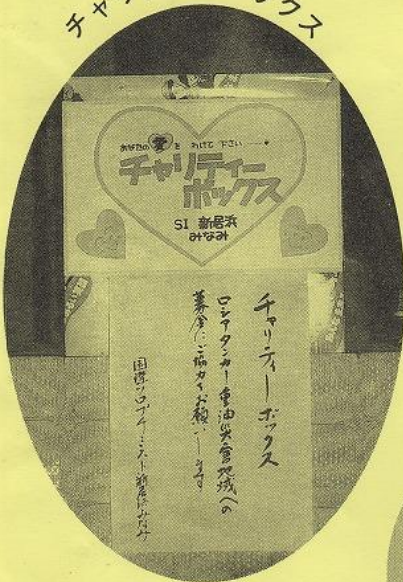 チャリティーボックス
あなたの愛をわけて下さい……♥
チャリティー
ボックス
SI 新居浜
みなみ
チャリティーボックス
ロシアタンカー重油災害地域への
募金にご協力お願いします
国際ソロプチミスト新居浜みなみ